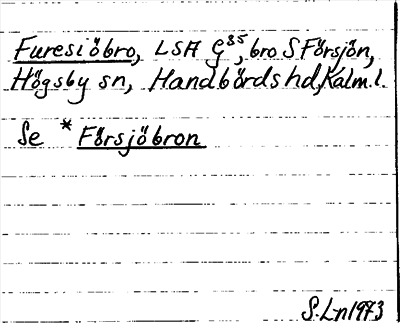 Furesiöbro, LSH G35, bro S Försjön,
Högsby sn, Handbörds hd, Kalm. l.
Se *Försjöbron
S. Ln 1973